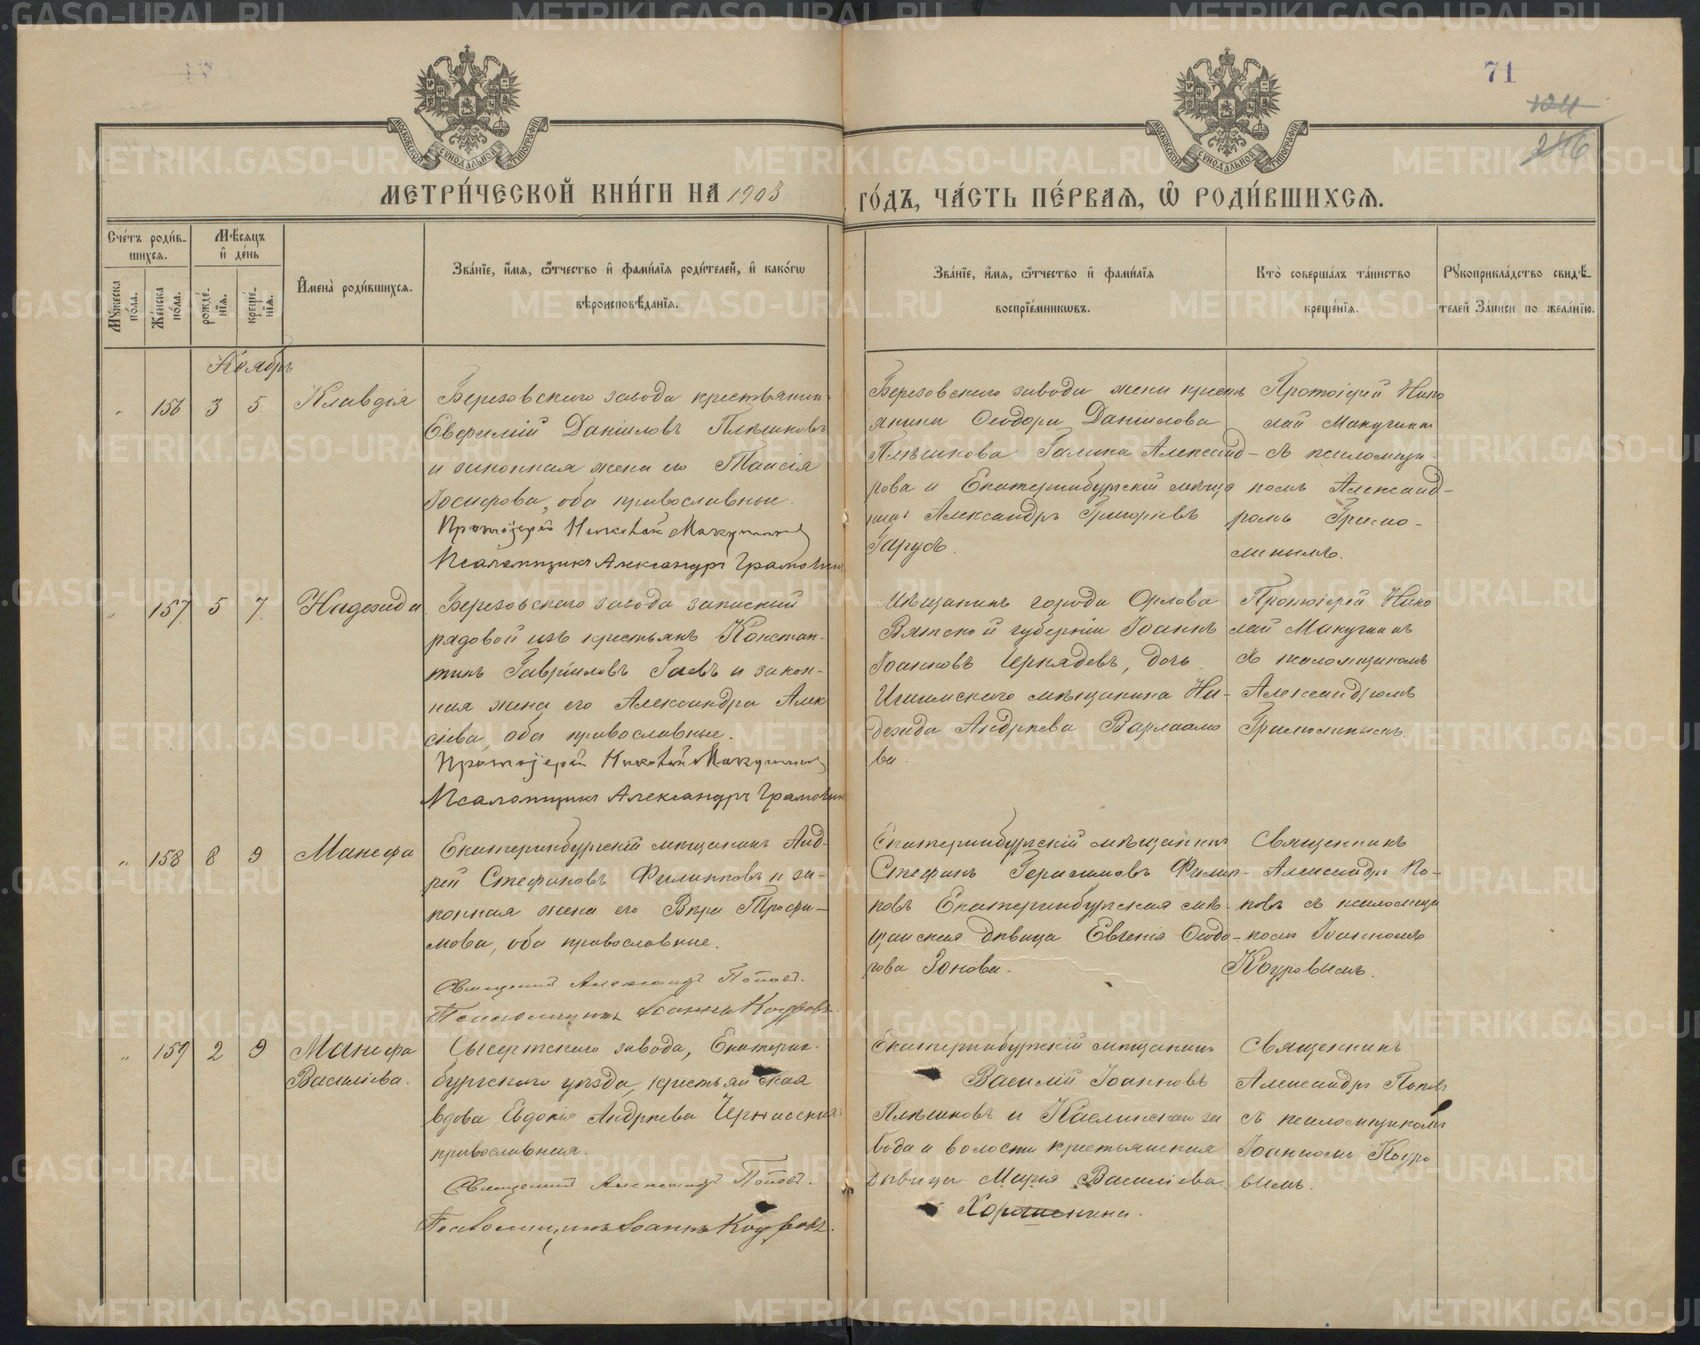 71
124
246
МЕТРИ́ЧЕСКОЙ КНИ́ГИ НА 1903
ГО́ДЪ, ЧА́СТЬ ПЕ́РВАЯ, Ѡ РОДИ́ВШИХСЯ.
Сче́тъ роди́в-
шихся.
Мѣ́сяцъ
и де́нь
Му́жеска по́ла.
Же́нска по́ла.
рожде́нія.
креще́нія.
Имена̀ роди́вшихся.
Зва́ніе, и́мя, ѻ́тчество и фами́лія роди́телей, и како́гѡ
вѣроисповѣ́данія.
Зва́ніе, и́мя, ѻ́тчество и фами́лія
воспріе́мникѡвъ.
Кто̀ соверша́лъ та́инство
креще́нія.
Рꙋкоприкла́дство свидѣ́-
телей За́писи по жела́нію.
Ноябрь
156 3 5 Клавдія
Березовскаго завода крестьянинъ
Евфимій Даніиловъ Плѣшковъ
и законная жена его Таисія
оба православные.
Протоіерей Николай Макушинъ
Псаломщикъ Александръ Грамолинъ
Березовскаго завода жена кресть
янина Ѳеодора Данілова
Плѣшкова Галина Александ-
рова и Екатеринбургскій мѣща
нинъ Александръ Григорьевъ
Протоіерей Нико
лай Макушинъ
съ псаломщи-
комъ Александ-
ромъ Грамо-
линымъ.
157 5 7 Надежда
Березовскаго завода запасный
рядовой изъ крестьянъ Констан-
тинъ Гавріиловъ Гаевъ и закон-
ная жена его Александра Алек
сѣева, оба православные.
Протоіерей Николай Макушинъ
Псаломщикъ Александръ Грамолинъ
Мѣщанинъ города Орлова
Вятской губерніи Іоаннъ
Іоанновъ Чернядевъ, дочь
Ишимскаго мѣщанина На-
дежда Андреева Варлаамо
ва.
Протоіерей Нико
лай Макушинъ
съ псаломщикомъ
Александромъ
Грамолинымъ.
158 8 9 Манефа
Екатеринбургскій мѣщанинъ Анд-
рей Стефановъ Филипповъ и за-
конная жена его Вѣра Трофи-
мова, оба православные.
Священникъ Александръ Поповъ.
Псаломщикъ Іоаннъ Коуровъ.
Екатеринбургскій мѣщанинъ
Стефанъ Герасимовъ Филип-
повъ Екатеринбургская мѣ-
щанская дѣвица Евгенія Ѳеодо-
рова Зонова.
Священникъ
Александръ По-
повъ съ псаломщи
комъ Іоанномъ
Коуровымъ.
159 2 9 Манефа
Васильева.
Сысертскаго завода, Екатерин-
бургскаго уѣзда, крестьянская
вдова Евдокія Андреева
православная.
Священникъ Александръ Поповъ.
Псаломщикъ Іоаннъ Коуровъ.
Екатеринбургскій мѣщанинъ
Василій Іоанновъ
Плѣшковъ и Каслинскаго за
вода и волости крестьянская
дѣвица Марія Васильева
Священникъ
Александръ Поповъ
съ псаломщикомъ
Іоанномъ Коуро
вымъ.
METRIKI.GASO-URAL.RU